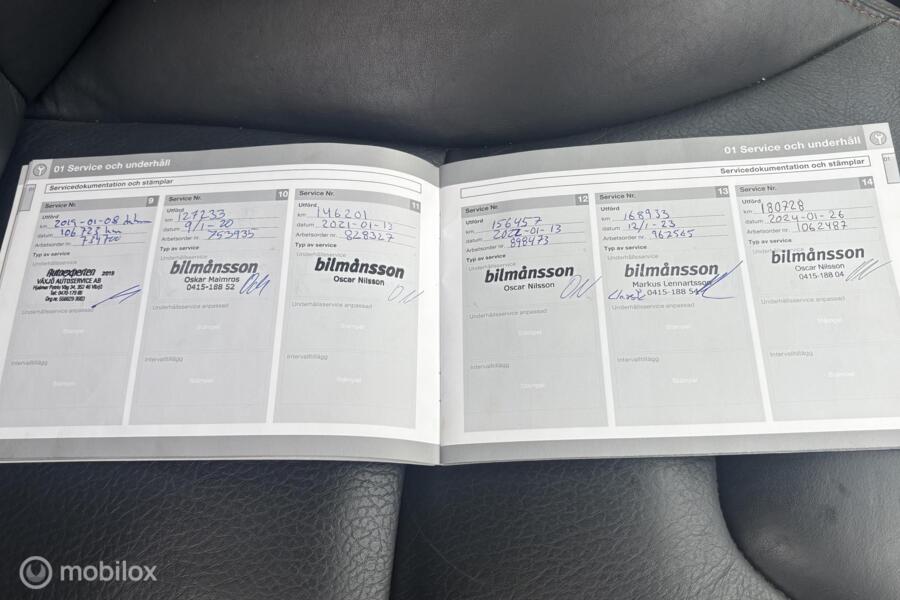 01 Service och underhåll
Servicedokumentation och stämplar
Service Nr. 9
Utförd
km 2019-01-08
datum 106725 km
Arbetsorder nr
Typ av service
Underhållsservice
Autoexperten 2015
VÄXJÖ AUTOSERVICE AB
Underhållsservice anpassad
Stämpel
Intervalltillägg
Stämpel
Service Nr. 10
Utförd
km 127233
datum 9/1-20
Arbetsorder nr 755935
Typ av service
Underhållsservice
bilmånsson
Oskar Malmros
0415-188 52
Underhållsservice anpassad
Stämpel
Intervalltillägg
Stämpel
Service Nr. 11
Utförd
km 146201
datum 2021-01-13
Arbetsorder nr 828327
Typ av service
Underhållsservice
bilmånsson
Oscar Nilsson
Underhållsservice anpassad
Stämpel
Intervalltillägg
Stämpel
01 Service och underhåll
Servicedokumentation och stämplar
01
Service Nr. 12
Utförd
km 156457
datum 2022-01-13
Arbetsorder nr 898473
Typ av service
Underhållsservice
bilmånsson
Oscar Nilsson
Underhållsservice anpassad
Stämpel
Intervalltillägg
Stämpel
Service Nr. 13
Utförd
km 168933
datum 12/1-23
Arbetsorder nr 962565
Typ av service
Underhållsservice
bilmånsson
Markus Lennartsson
0415-188 54
Underhållsservice anpassad
Stämpel
Intervalltillägg
Stämpel
Service Nr. 14
Utförd
km 180728
datum 2024-01-26
Arbetsorder nr 1062487
Typ av service
Underhållsservice
bilmånsson
Oscar Nilsson
0415-188 04
Underhållsservice anpassad
Stämpel
Intervalltillägg
Stämpel
mobilox